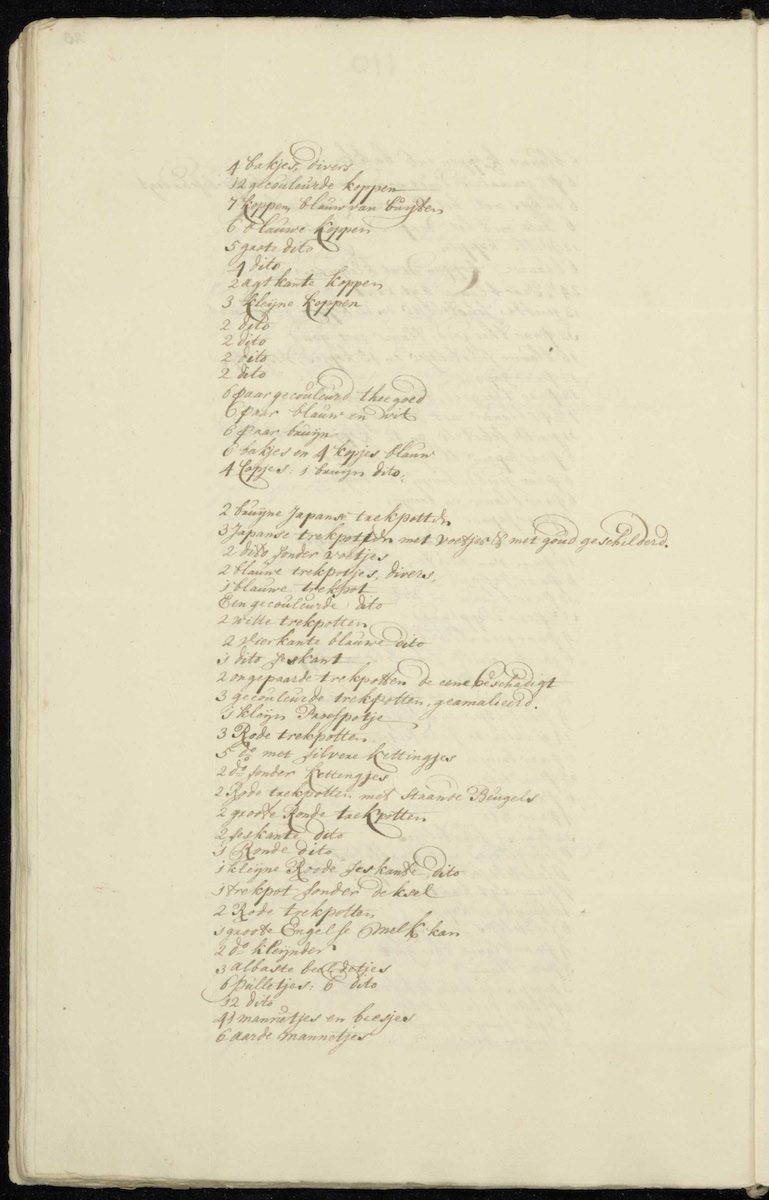 4 bakjes, divers
12 gecouleurde koppen
7 koppen, blauw van buijten
6 blauwe koppen
5 groote dito
4 dito
2 agtkante koppen
3 kleijne koppen
2 dito
2 dito
2 dito
2 dito
6 paar gecouleurd theegoed
6 paar blauw en wit
6 paar bruijn
6 bakjes en 4 kopjes blauw
4 kopjes: 1 bruijn dito:
2 bruijne Japanse trekpotten
3 Japanse trekpotten met voetjes & met goud geschilderd.
2 dito sonder voetjes
2 blauwe trekpotjes, divers,
1 blauwe trekpot
Een gecouleurde dito
2 witte trekpotten
2 vierkante blauwe dito
1 dito seskant
2 ongepaarde trekpotten de eene beschadigt
3 gecouleurde trekpotten, geamalieerd.
1 kleijn Proefpotje
3 Rode trekpotten
5 do met silvere kettingjes
2 do sonder kettingjes
2 Rode trekpotten met staande Beugels
2 groote Ronde trekpotten
2 seskante dito
1 Ronde dito
1 kleijne Roode seskante dito
1 trekpot sonder deksel
2 Rode trekpotten
1 groote Engelse melk kan
2 do kleijnder
3 albaste beeldetjes
6 pulletjes: 6 dito
12 dito
41 mannetjes en beesjes
6 aarde mannetjes